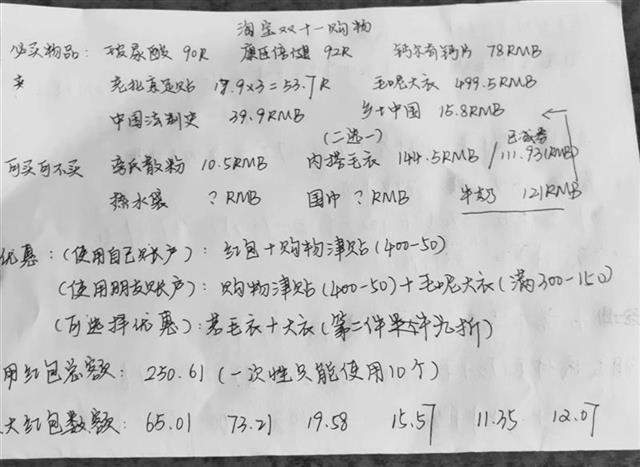 淘宝双十一购物
必买物品: 玻尿酸 90R 康医倍健 92R 钙尔奇钙片 78RMB
足贴 17.9x3=53.7R 毛呢大衣 499.5RMB
中国法制史 39.9RMB 乡土中国 15.8RMB
(二选一)
可买可不买 散粉 10.5RMB 内搭毛衣 144.5RMB / 111.93(RMB)
热水袋 ?RMB 围巾 ?RMB 牛奶 121RMB
优惠:(使用自己账户): 红包+购物津贴(400-50)
(使用朋友账户): 购物津贴(400-50)+毛呢大衣(满300-150)
(可选择优惠):若毛衣+大衣(第二件单件九折)
用红包总额: 250.61(一次性只能使用10个)
大红包数额: 65.01 73.21 19.58 15.57 11.35 12.07